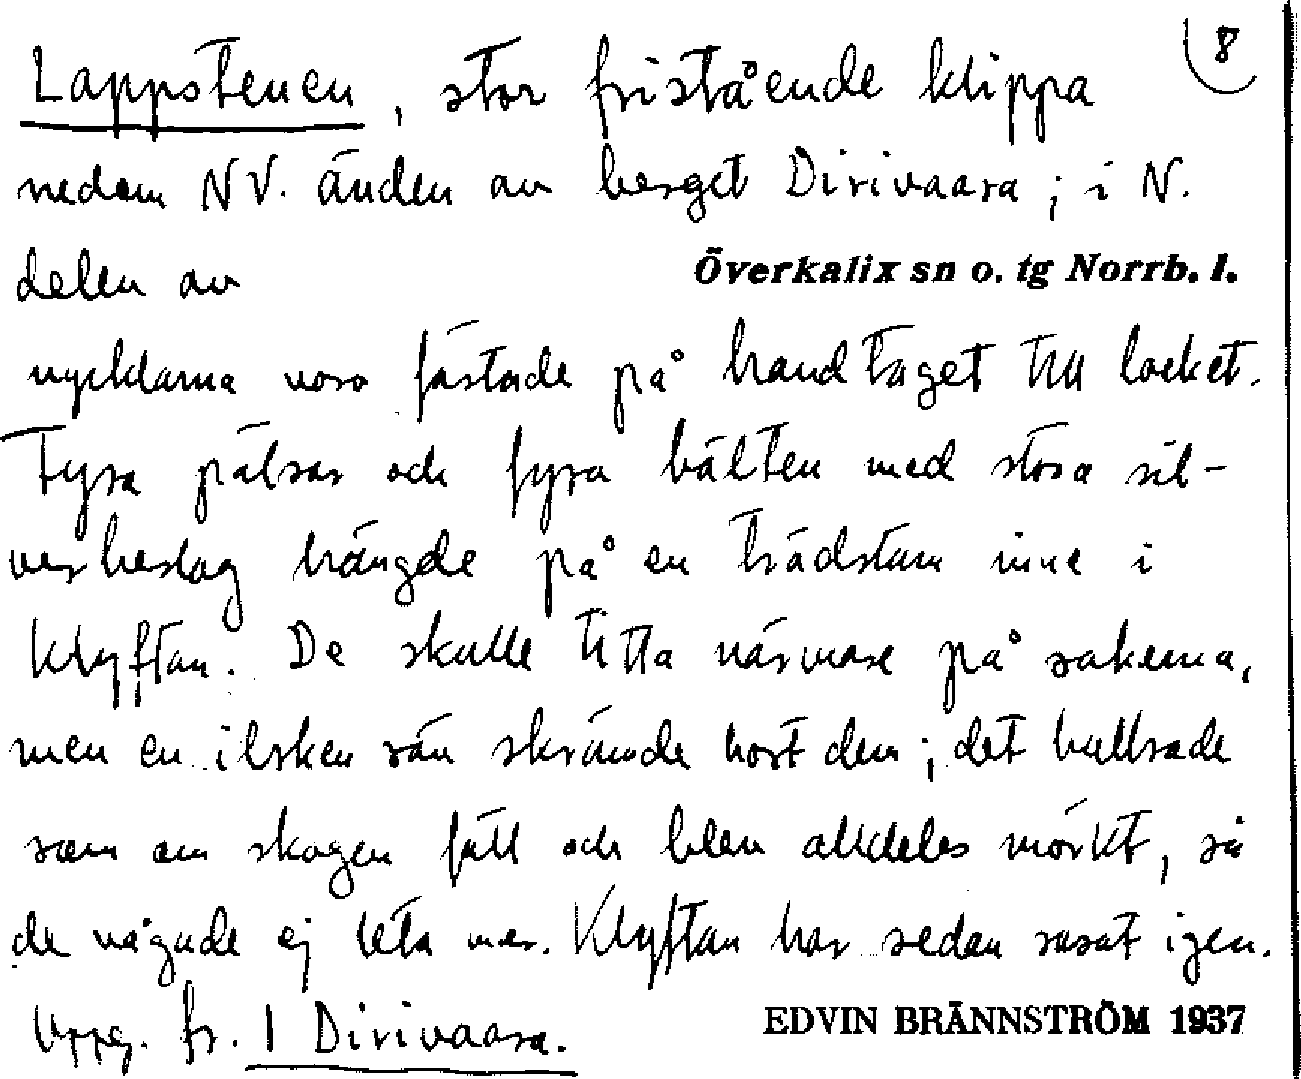 8
Lappstenen, stor fristående klippa
nedom NV. änden av berget Dirivaara; i N.
delen av Överkalix sn o. tg Norrb. l.
nycklarna voro fästade på handtaget till locket.
Fyra pälsar och fyra bälten med stora sil-
verbeslag hängde på en trädstam inne i
klyftan. De skulle titta närmare på sakerna,
men en ilsken rön skrämde bort dem; det bullrade
som om skogen föll och blev alldeles mörkt, så
de vågade ej leta mer. Klyftan har sedan rasat igen.
Uppg. fr. 1 Dirivaara. EDVIN BRÄNNSTRÖM 1937